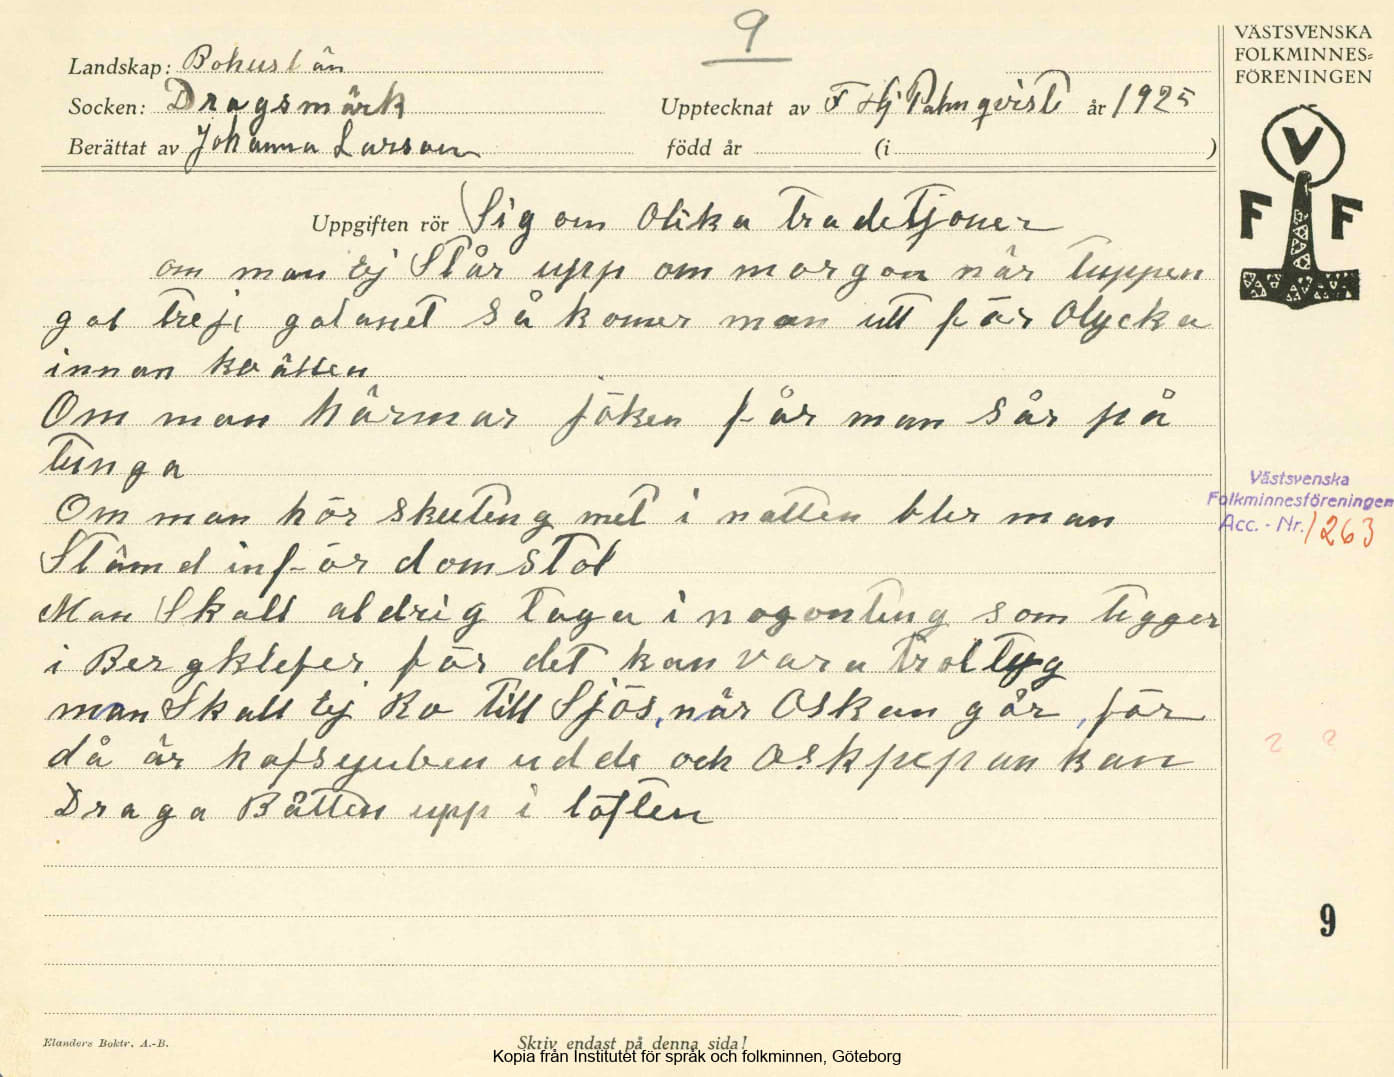 9
VÄSTSVENSKA
FOLKMINNES=
FÖRENINGEN
Landskap: Bohuslän
Socken: Dragsmärk
Upptecknat av F Hj Palmqvist år 1925
Berättat av Johanna Larson
född år (i )
V
F F
Uppgiften rör Sig om Olika tradetjoner
om man Ej Står upp om morgon när tuppen
gol treje galanet så komer man utt før Olycka
innan kvällen
Om man härmar jöken får man Sår på
tunga
Om man hör skuteng met i natten bler man
Stämd inför domstol
Man Skall aldrig taga i nogonteng som ligger
i Bergklefer för det kan vara troltyg
man Skall Ej Ro till Sjös, når Oskan går, för
då är hafsguben udde och Oskpipan kan
Draga Båtten upp i löften
Västsvenska
Folkminnesföreningen
Acc. - Nr. 1263
? ?
9
Elanders Boktr. A.-B.
Skriv endast på denna sida!
Kopia från Institutet för språk och folkminnen, Göteborg